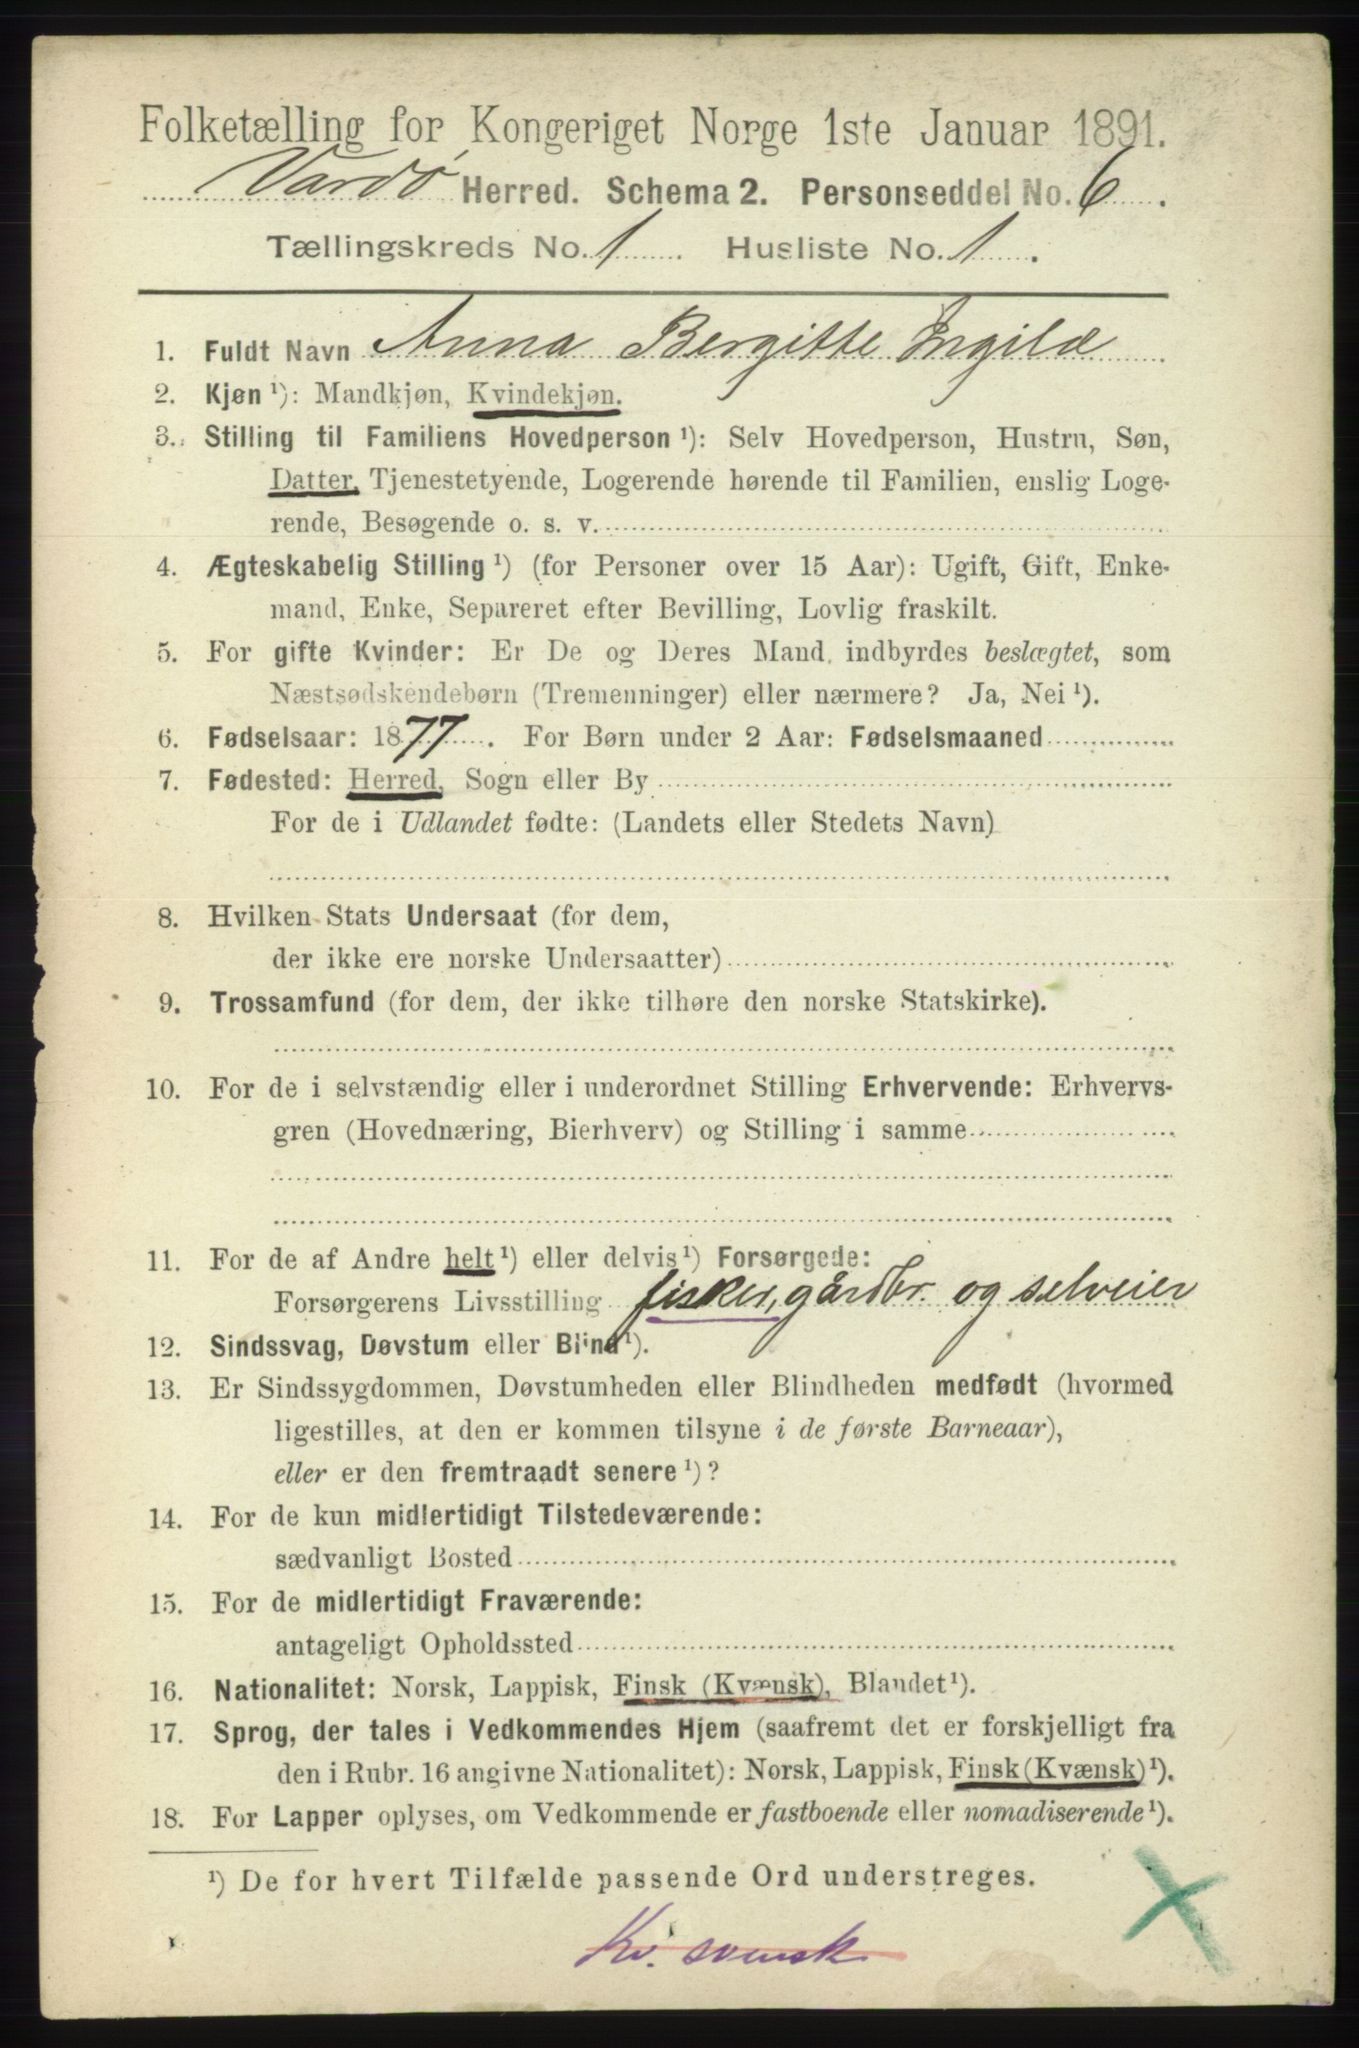 Folketælling for Kongeriget Norge 1ste Januar 1891.
Vardø Herred. Schema 2. Personseddel No. 6.
Tællingskreds No. 1. Husliste No. 1.
1. Fuldt Navn Anna Bergitte Ingilæ
2. Kjøn ¹): Mandkjøn, Kvindekjøn.
3. Stilling til Familiens Hovedperson ¹): Selv Hovedperson, Hustru, Søn,
Datter, Tjenestetyende, Logerende hørende til Familien, enslig Loge-
rende, Besøgende o. s. v.
4. Ægteskabelig Stilling ¹) (for Personer over 15 Aar): Ugift, Gift, Enke-
mand, Enke, Separeret efter Bevilling, Lovlig fraskilt.
5. For gifte Kvinder: Er De og Deres Mand indbyrdes beslægtet, som
Næstsødskendebørn (Tremenninger) eller nærmere? Ja, Nei ¹).
6. Fødselsaar: 1877. For Børn under 2 Aar: Fødselsmaaned
7. Fødested: Herred, Sogn eller By
For de i Udlandet fødte: (Landets eller Stedets Navn)
8. Hvilken Stats Undersaat (for dem,
der ikke ere norske Undersaatter)
9. Trossamfund (for dem, der ikke tilhøre den norske Statskirke).
10. For de i selvstændig eller i underordnet Stilling Erhvervende: Erhvervs-
gren (Hovednæring, Bierhverv) og Stilling i samme
11. For de af Andre helt ¹) eller delvis ¹) Forsørgede:
Forsørgerens Livsstilling fisker, gårdbr. og selveier
12. Sindssvag, Døvstum eller Blind ¹).
13. Er Sindssygdommen, Døvstumheden eller Blindheden medfødt (hvormed
ligestilles, at den er kommen tilsyne i de første Barneaar),
eller er den fremtraadt senere ¹)?
14. For de kun midlertidigt Tilstedeværende:
sædvanligt Bosted
15. For de midlertidigt Fraværende:
antageligt Opholdssted
16. Nationalitet: Norsk, Lappisk, Finsk (Kvænsk), Blandet ¹).
17. Sprog, der tales i Vedkommendes Hjem (saafremt det er forskjelligt fra
den i Rubr. 16 angivne Nationalitet): Norsk, Lappisk, Finsk (Kvænsk) ¹).
18. For Lapper oplyses, om Vedkommende er fastboende eller nomadiserende ¹).
¹) De for hvert Tilfælde passende Ord understreges.
Kv. svensk